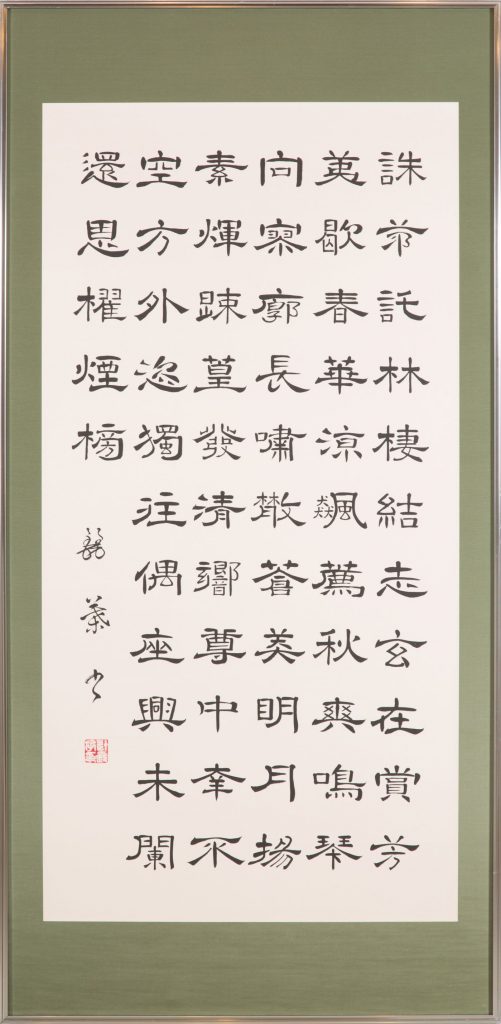 誅茅託林棲結志玄在賞芳
荑歇春華涼飆薦秋爽鳴琴
向寥廓長嘯散蒼莽明月揚
素煇踈篁發清響尊中幸不
空方外恣獨往偶座興未闌
還思櫂煙榜
葉书